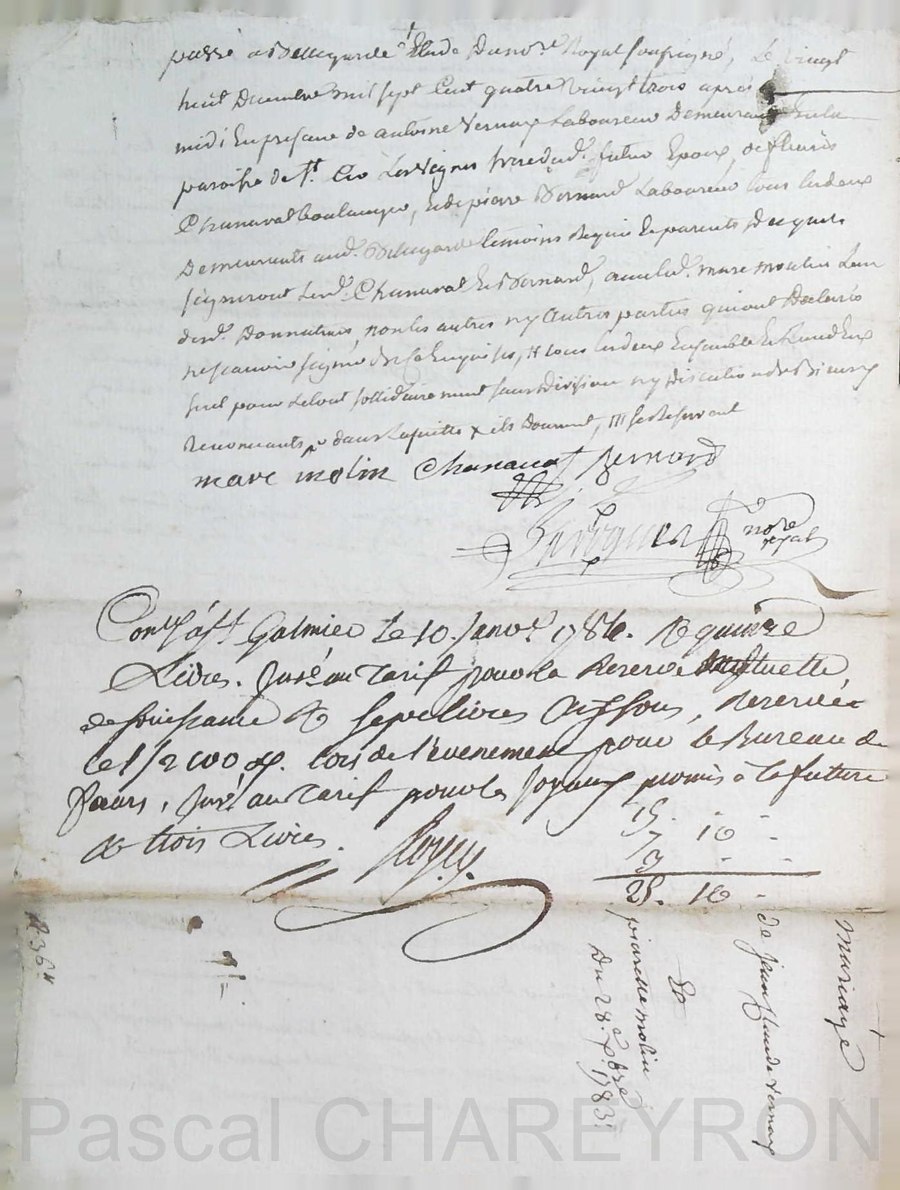 passé a Bellegarde Etude du no.re Royal soussigné, Le vingt
huit Decembre mil sept Cent quatre vingt trois après
midi En presance de antoine Vernay Laboureur Demeurant En la
paroisse de St. Cir Les Vignes frere dud. futur Epoux, de fleuris
Chanavat boulanger, et de pierre Bernard Laboureur tous Les deux
Demeurants aud. Bellegarde temoins Requis Et parents Desquels
signeront Lesd. Chanavat Et Bernard, avec led. marc moulin L'un
desd. Donnateurs, non les autres ny autres parties qui ont Declarés
ne scavoir signer de ce Enquises, # tous Les deux Ensemble Et L'un d'Eux
seul pour Le tout sollidairement sans division ny discution de Biens y
Renoncants, dans Laquelle x ils Donnent, ### se Reservant
marc molin Chanavat Bernard
no.re royal
Con.lé à St. Galmier Le 10. Janv.r 1784. R quinze
Livres. fixé au Tarif pour la Reserve mutuelle,
de jouissance R sept livres dix sous, Reservée
le 1/2 100.e lors de l'evenement pour le Bureau de
feurs, fixé au Tarif pour les Joyaux promis à la future
R trois Livres.
15. " "
7 10 "
3 " "
25. 10 "
Mariage
de Jean Claude Vernay
Et
pierrette molin
Du 28.e Xbre 1783.
Pascal CHAREYRON